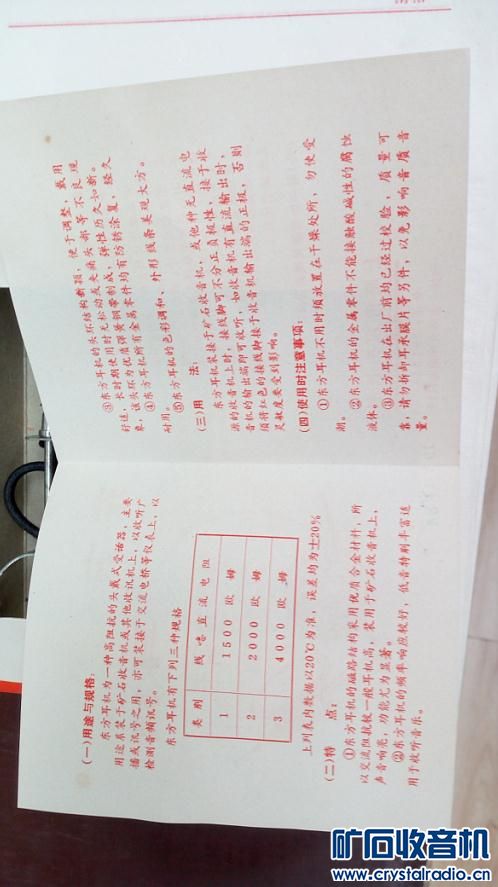 (一)用途与规格:
东方耳机为一种高阻抗的头戴式受话器,主要
用途系装于矿石收音机或其他收讯机上,以收听广
播或讯号之用,亦可装接于交流电桥等仪表上,以
检测音频讯号。
东方耳机有下列三种规格
类别 线卷直流电阻
1 1500 欧姆
2 2000 欧姆
3 4000 欧姆
上列表内数据以20℃为准,误差均为±20%
(二)特 点:
①东方耳机的磁路结构采用优质合金材料,所
以交流阻抗较一般耳机高,装用于矿石收音机上,
声音响亮,功能尤为显著。
②东方耳机的频率响应较好,低音特别丰富适
用于收听音乐。
③东方耳机的头环结构新颖,便于调整,戴用
舒适,长时期使用时无松动或夹痛头部等不良现
象,该头环为优质弹簧钢带制成,弹性历久如新。
④东方耳机所有金属零件均有防锈涂复,经久
耐用。
⑤东方耳机的色彩调和,外形线条美观大方。
(三)用 法:
东方耳机装接于矿石收音机,或他种无直流电
源的收音机上时,接线脚可不分正负极性,接于收
音机的输出端即可收听,如收音机有直流输出时,
须将红色的接线脚接于收音机输出端的正极,否则
灵敏度要受到影响。
(四)使用时注意事项:
①东方耳机不用时须放置在干燥处所,勿使受
潮。
②东方耳机的金属零件不能接触酸碱性的腐蚀
液体。
③东方耳机在出厂前均已经过校验,质量可
靠,请勿拆卸耳承膜片等另件,以免影响音质音
量。
矿石收音机
www.crystalradio.cn